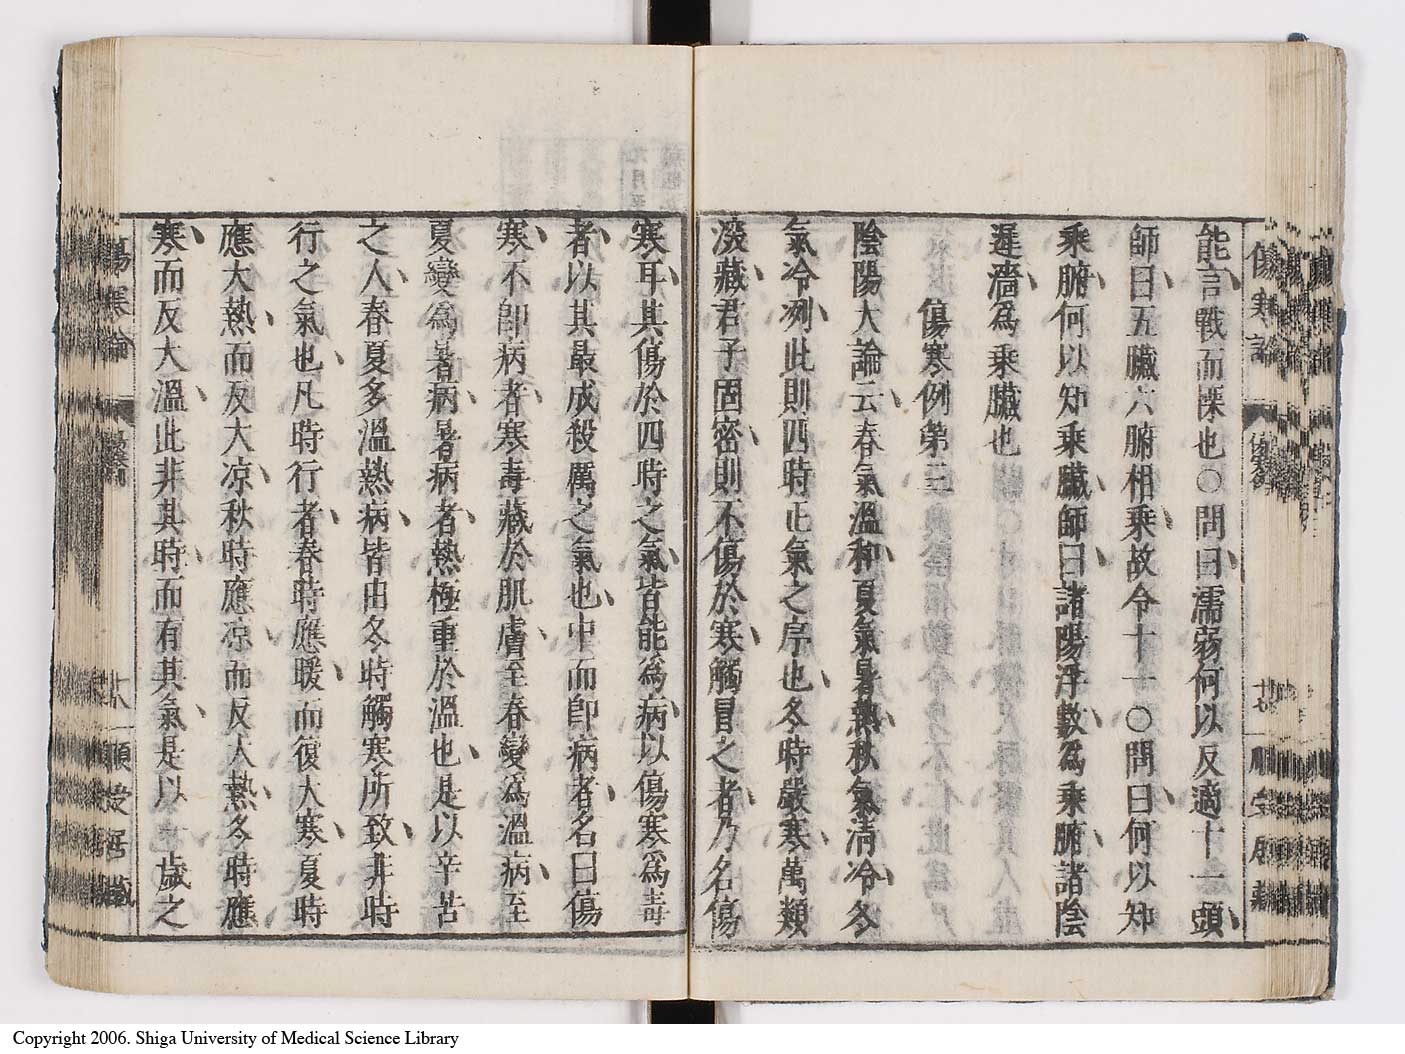 能言戰而慄也○問曰濡弱何以反適十一頭
師曰五臟六腑相乘故令十一○問曰何以知
乘腑何以知乘臟師曰諸陽浮數為乘腑諸陰
遲濇為乘臟也
傷寒例第三
陰陽大論云春氣溫和夏氣暑熱秋氣清冷冬
氣冷冽此則四時正氣之序也冬時嚴寒萬類
深藏君子固密則不傷於寒觸冒之者乃名傷
寒耳其傷於四時之氣皆能為病以傷寒為毒
者以其最成殺厲之氣也中而即病者名曰傷
寒不即病者寒毒藏於肌膚至春變為溫病至
夏變為暑病暑病者熱極重於溫也是以辛苦
之人春夏多溫熱病皆由冬時觸寒所致非時
行之氣也凡時行者春時應暖而復大寒夏時
應大熱而反大凉秋時應凉而反大熱冬時應
寒而反大溫此非其時而有其氣是以 歲之
傷寒論
Copyright 2006. Shiga University of Medical Science Library